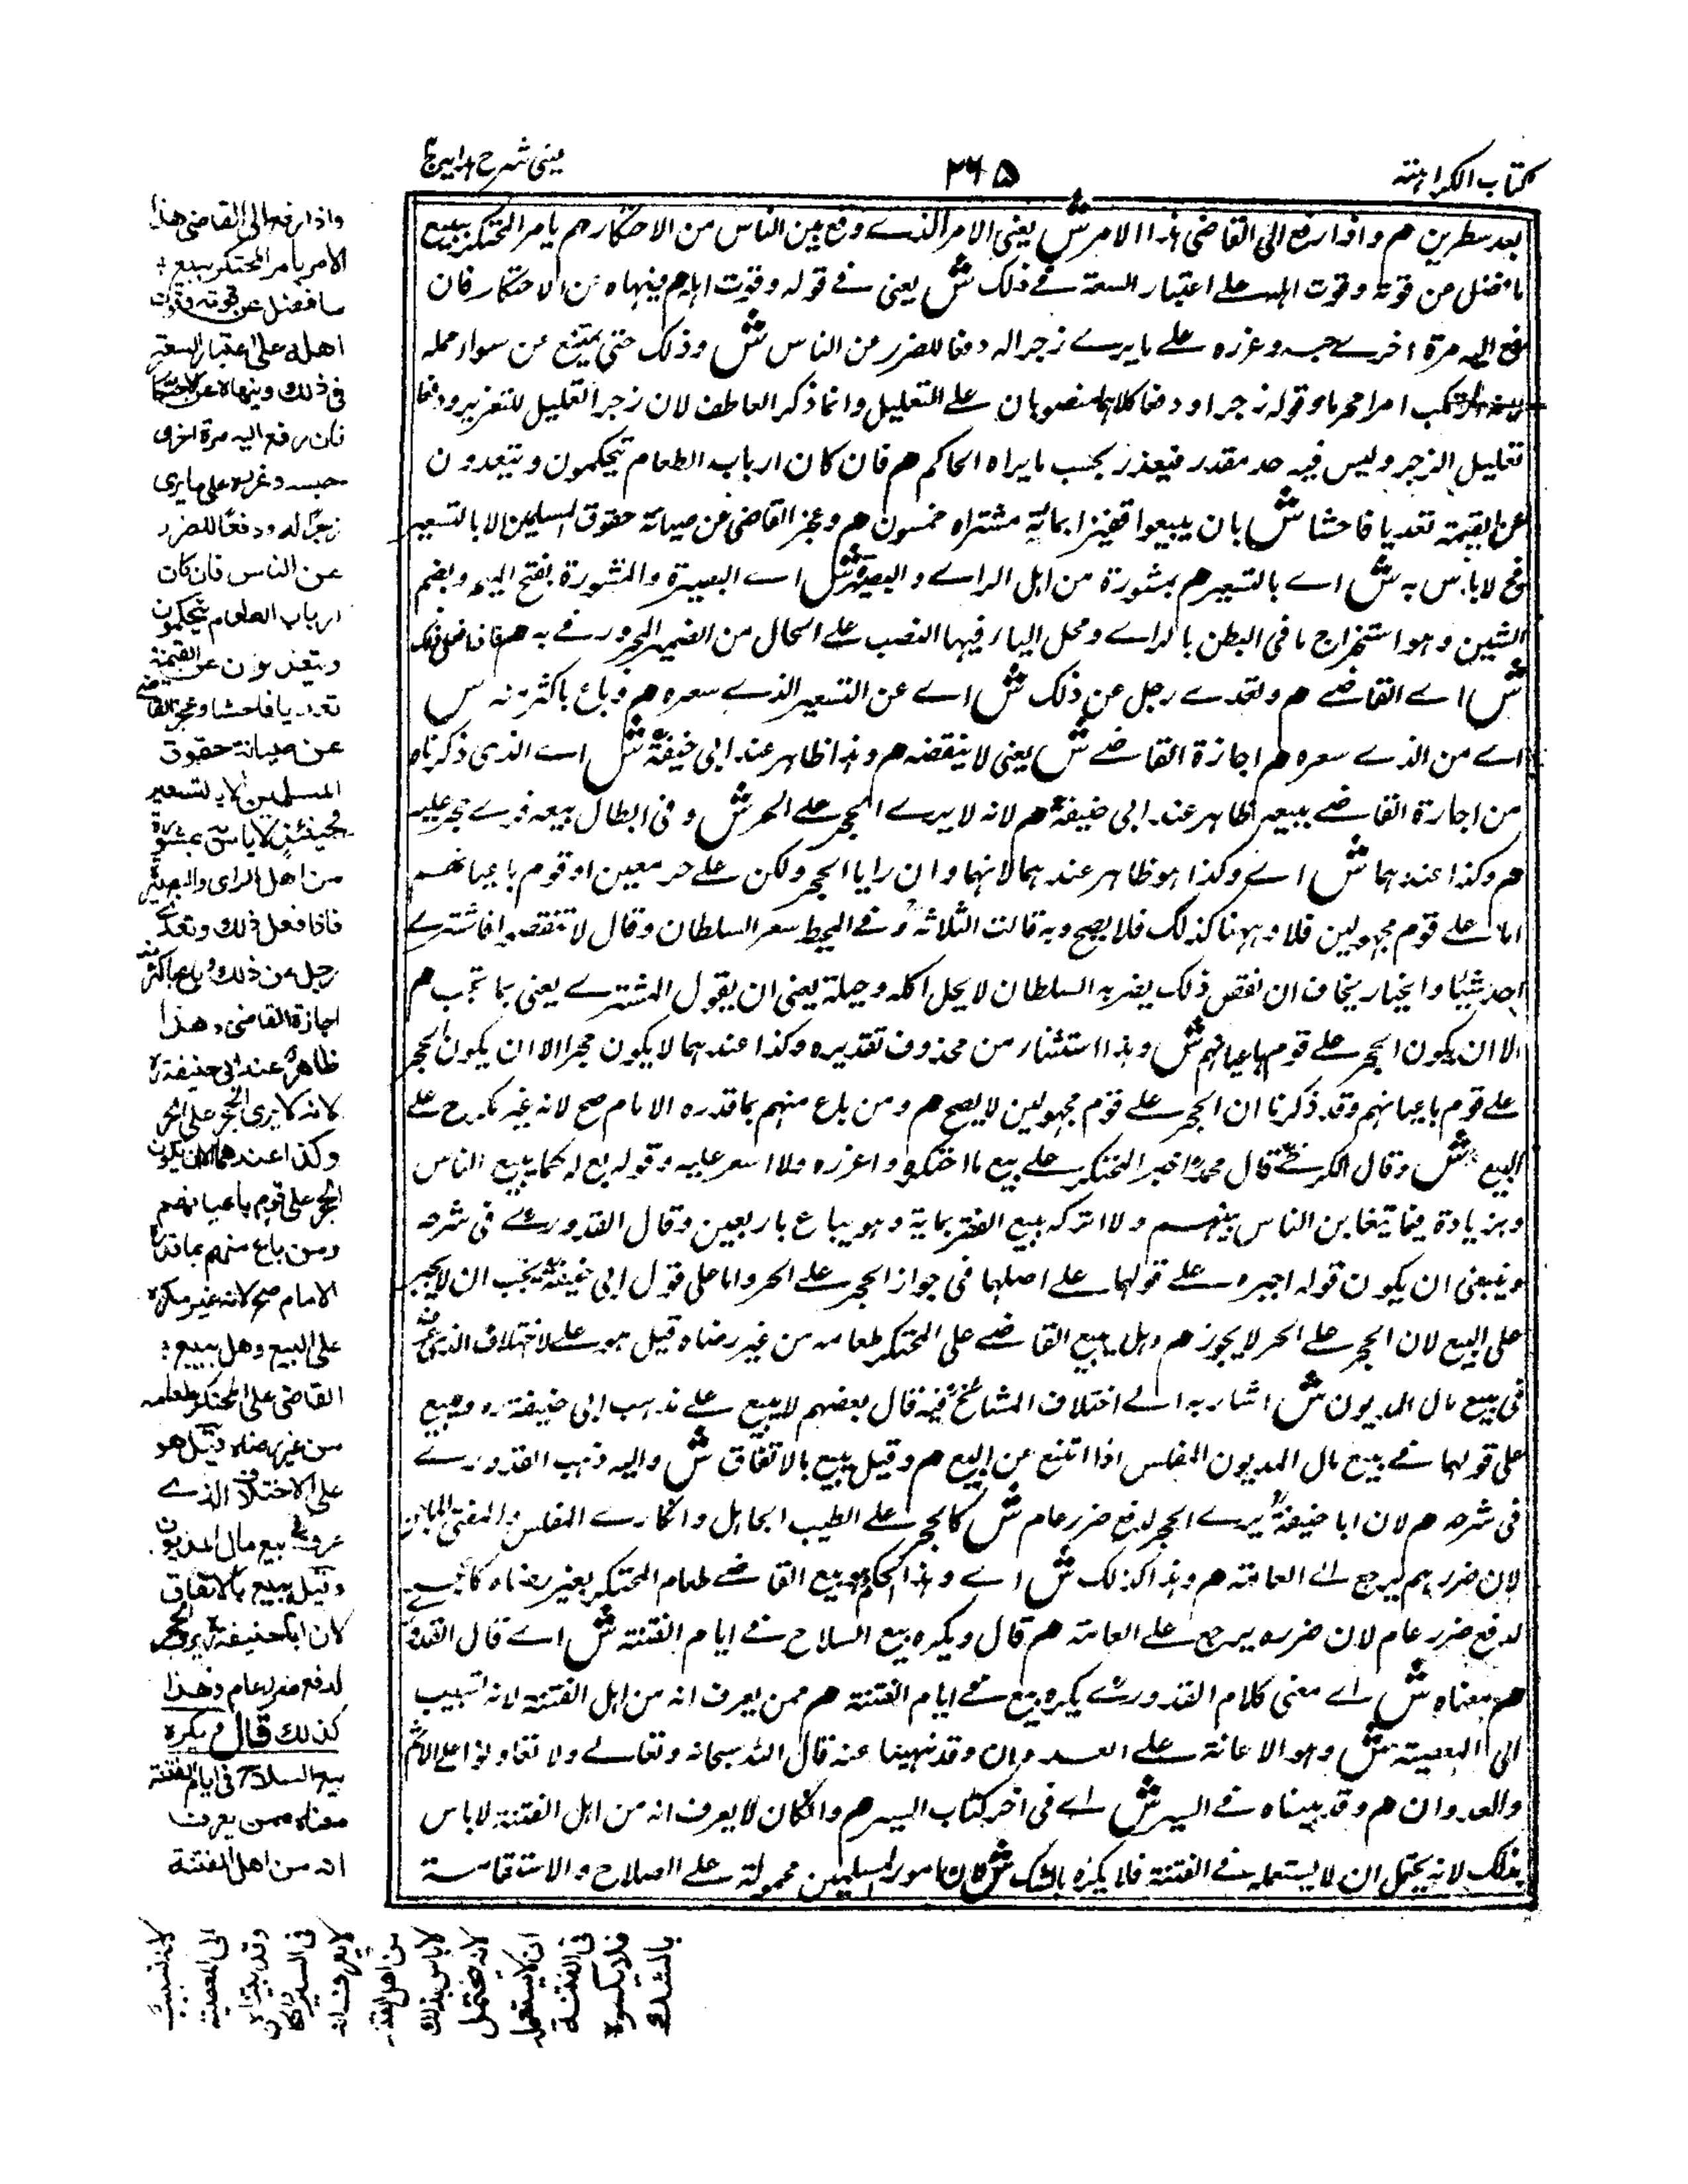 كتاب الكراهية
٢٦٥
عينى شرح هدايه ج ٤
بعد سطرين هم واذا رفع الى القاضى هذا الامر ش يعنى الامر الذى وقع بين الناس من الاحتكار هم يامر المحتكر ببيع
ما فضل من قوته وقوت اهله على اعتبار السعة فى ذلك ش يعنى فى قوله وقوت اهله هم وينهاه عن الاحتكار فان
رفع اليه مرة اخرى حبسه وعزره على ما يرى زجرا له ودفعا للضرر عن الناس ش وذلك حتى يمتنع عن سوء عمله
ارتكب امرا محرما وقوله زجرا ودفعا كلاهما منصوبان على التعليل وانما ذكر العاطف لان زجرا تعليل للتعزير ودفعا
تعليل الزجر وليس فيه حد مقدر فيعذر بحسب ما يراه الحاكم هم فان كان ارباب الطعام يتحكمون ويتعدون
عن القيمة تعديا فاحشا ش بان يبيعوا قفيزا بمائة مشتراه خمسون هم وعجز القاضى عن صيانة حقوق المسلمين الا بالتسعير
فح لاباس به ش اى بالتسعير هم بمشورة من اهل الراى والبصيرة ش اى البصيرة والمشورة بفتح الميم وبضم
الشين وهو استخراج ما فى البطن بالراى ومحل الباء فيها النصب على الحال من الضمير المجرور فى به هم فاذا فعل ذلك
ش اى القاضى هم وتعدى رجل عن ذلك ش اى عن التسعير الذى سعره هم وباع باكثر منه س
اى من الذى سعره هم اجازة القاضى ش يعنى لا ينقضه هم وهذا ظاهر عند ابى حنيفة ش اى الذى ذكرناه
من اجازة القاضى بيعه ظاهر عند ابى حنيفة هم لانه لا يرى الحجر على الحر ش وفى ابطال بيعه نوع حجر عليه
هم وكذا عندهما ش اى وكذا هو ظاهر عندهما لانهما وان رايا الحجر ولكن على حر معين او قوم باعيانهم
اما على قوم مجهولين فلا وههنا كذلك فلا يصح وبه قالت الثلاثة وفى المحيط سعر السلطان وقال لا تنقصوا فاشترى
احد شيئا والخباز يخاف ان نقص ذلك يضربه السلطان لا يحل اكله وحيلة يعنى ان يقول المشترى يعنى بما تحب هم
الا ان يكون الحجر على قوم باعيانهم ش وهذا استثناء من محذوف تقديره وكذا عندهما لا يكون حجرا الا ان يكون الحجر
على قوم باعيانهم وقد ذكرنا ان الحجر على قوم مجهولين لا يصح هم ومن باع منهم بما قدره الامام صح لانه غير مكره على
البيع ش وقال الكرخى قال محمد اجبر المحتكر على بيع ما احتكر واعزره ولا اسعر عليه وقوله بع له كما يبيع الناس
وبزيادة فيما يتغابن الناس بينهم ولا اتركه يبيع القفيز بماية وهو يباع باربعين وقال القدورى فى شرحه
وينبغى ان يكون قوله اجبره على قولهما على اصلهما فى جواز الحجر على الحر واما على قول ابى حنيفة يجب ان لا يجبر
على البيع لان الحجر على الحر لا يجوز هم وهل يبيع القاضى على المحتكر طعامه من غير رضاه قيل هو على الاختلاف الذى عرف
فى بيع مال المديون ش اشار به الى اختلاف المشائخ فيه قال بعضهم لا يبيع على مذهب ابى حنيفة ره ويبيع
على قولهما فى بيع مال المديون المفلس اذا امتنع عن البيع هم وقيل يبيع بالاتفاق ش واليه ذهب القدورى
فى شرحه هم لان ابا حنيفة يرى الحجر لدفع ضرر عام ش كالحجر على الطبيب الجاهل والمكارى المفلس والمفتى الماجن
لان ضررهم يرجع الى العامة هم وهذا كذلك ش اى وهذا الحكم وهو بيع القاضى طعام المحتكر بغير رضاه كالحجر
لدفع ضرر عام لان ضرره يرجع على العامة هم قال ويكره بيع السلاح فى ايام الفتنة ش اى قال القدورى
هم معناه ش اى معنى كلام القدورى يكره بيع فى ايام الفتنة هم ممن يعرف انه من اهل الفتنة لانه تسبيب
الى المعصية ش وهو الاعانة على العدوان وقد نهينا عنه قال الله سبحانه وتعالى ولا تعاونوا على الاثم
والعدوان هم وقد بيناه فى السير ش اى فى اخر كتاب السير هم وان كان لا يعرف انه من اهل الفتنة لا باس
بذلك لانه يحتمل ان لا يستعمله فى الفتنة فلا يكره بالشك ش لان امور المسلمين محمولة على الصلاح والاستقامة
واذا رفع الى القاضى هذا
الامر يامر المحتكر ببيع
ما فضل عن قوته وقوت
اهله على اعتبار السعة
فى ذلك وينهاه عن الاحتكار
فان رفع اليه مرة اخرى
حبسه وعزره على ما يرى
زجرًا له ودفعًا للضرر
عن الناس فان كان
ارباب الطعام يتحكمون
ويتعدون عن القيمة
تعديا فاحشا وعجز القاضى
عن صيانة حقوق
المسلمين الا بالتسعير
فحينئذٍ لا باس به بمشورة
من اهل الراى والبصيرة
فاذا فعل ذلك وتعدى
رجل عن ذلك وباع باكثر منه
اجازة القاضى وهذا
ظاهر عند ابى حنيفة
لانه لا يرى الحجر على الحر
وكذا عندهما الا ان يكون
الحجر على قوم باعيانهم
ومن باع منهم بما قدره
الامام صح لانه غير مكره
على البيع وهل يبيع
القاضى على المحتكر طعامه
من غير رضاه قيل هو
على الاختلاف الذى
عرف فى بيع مال المديون
وقيل يبيع بالاتفاق
لان ابا حنيفة يرى الحجر
لدفع ضرر عام وهذا
كذلك قال ويكره
بيع السلاح فى ايام الفتنة
معناه ممن يعرف
انه من اهل الفتنة
لانه تسبيب
الى المعصية
وقد بيناه
فى السير وان كان
لا يعرف انه
من اهل الفتنة
لا باس بذلك
لانه يحتمل
ان لا يستعمله
فى الفتنة
فلا يكره
بالشك